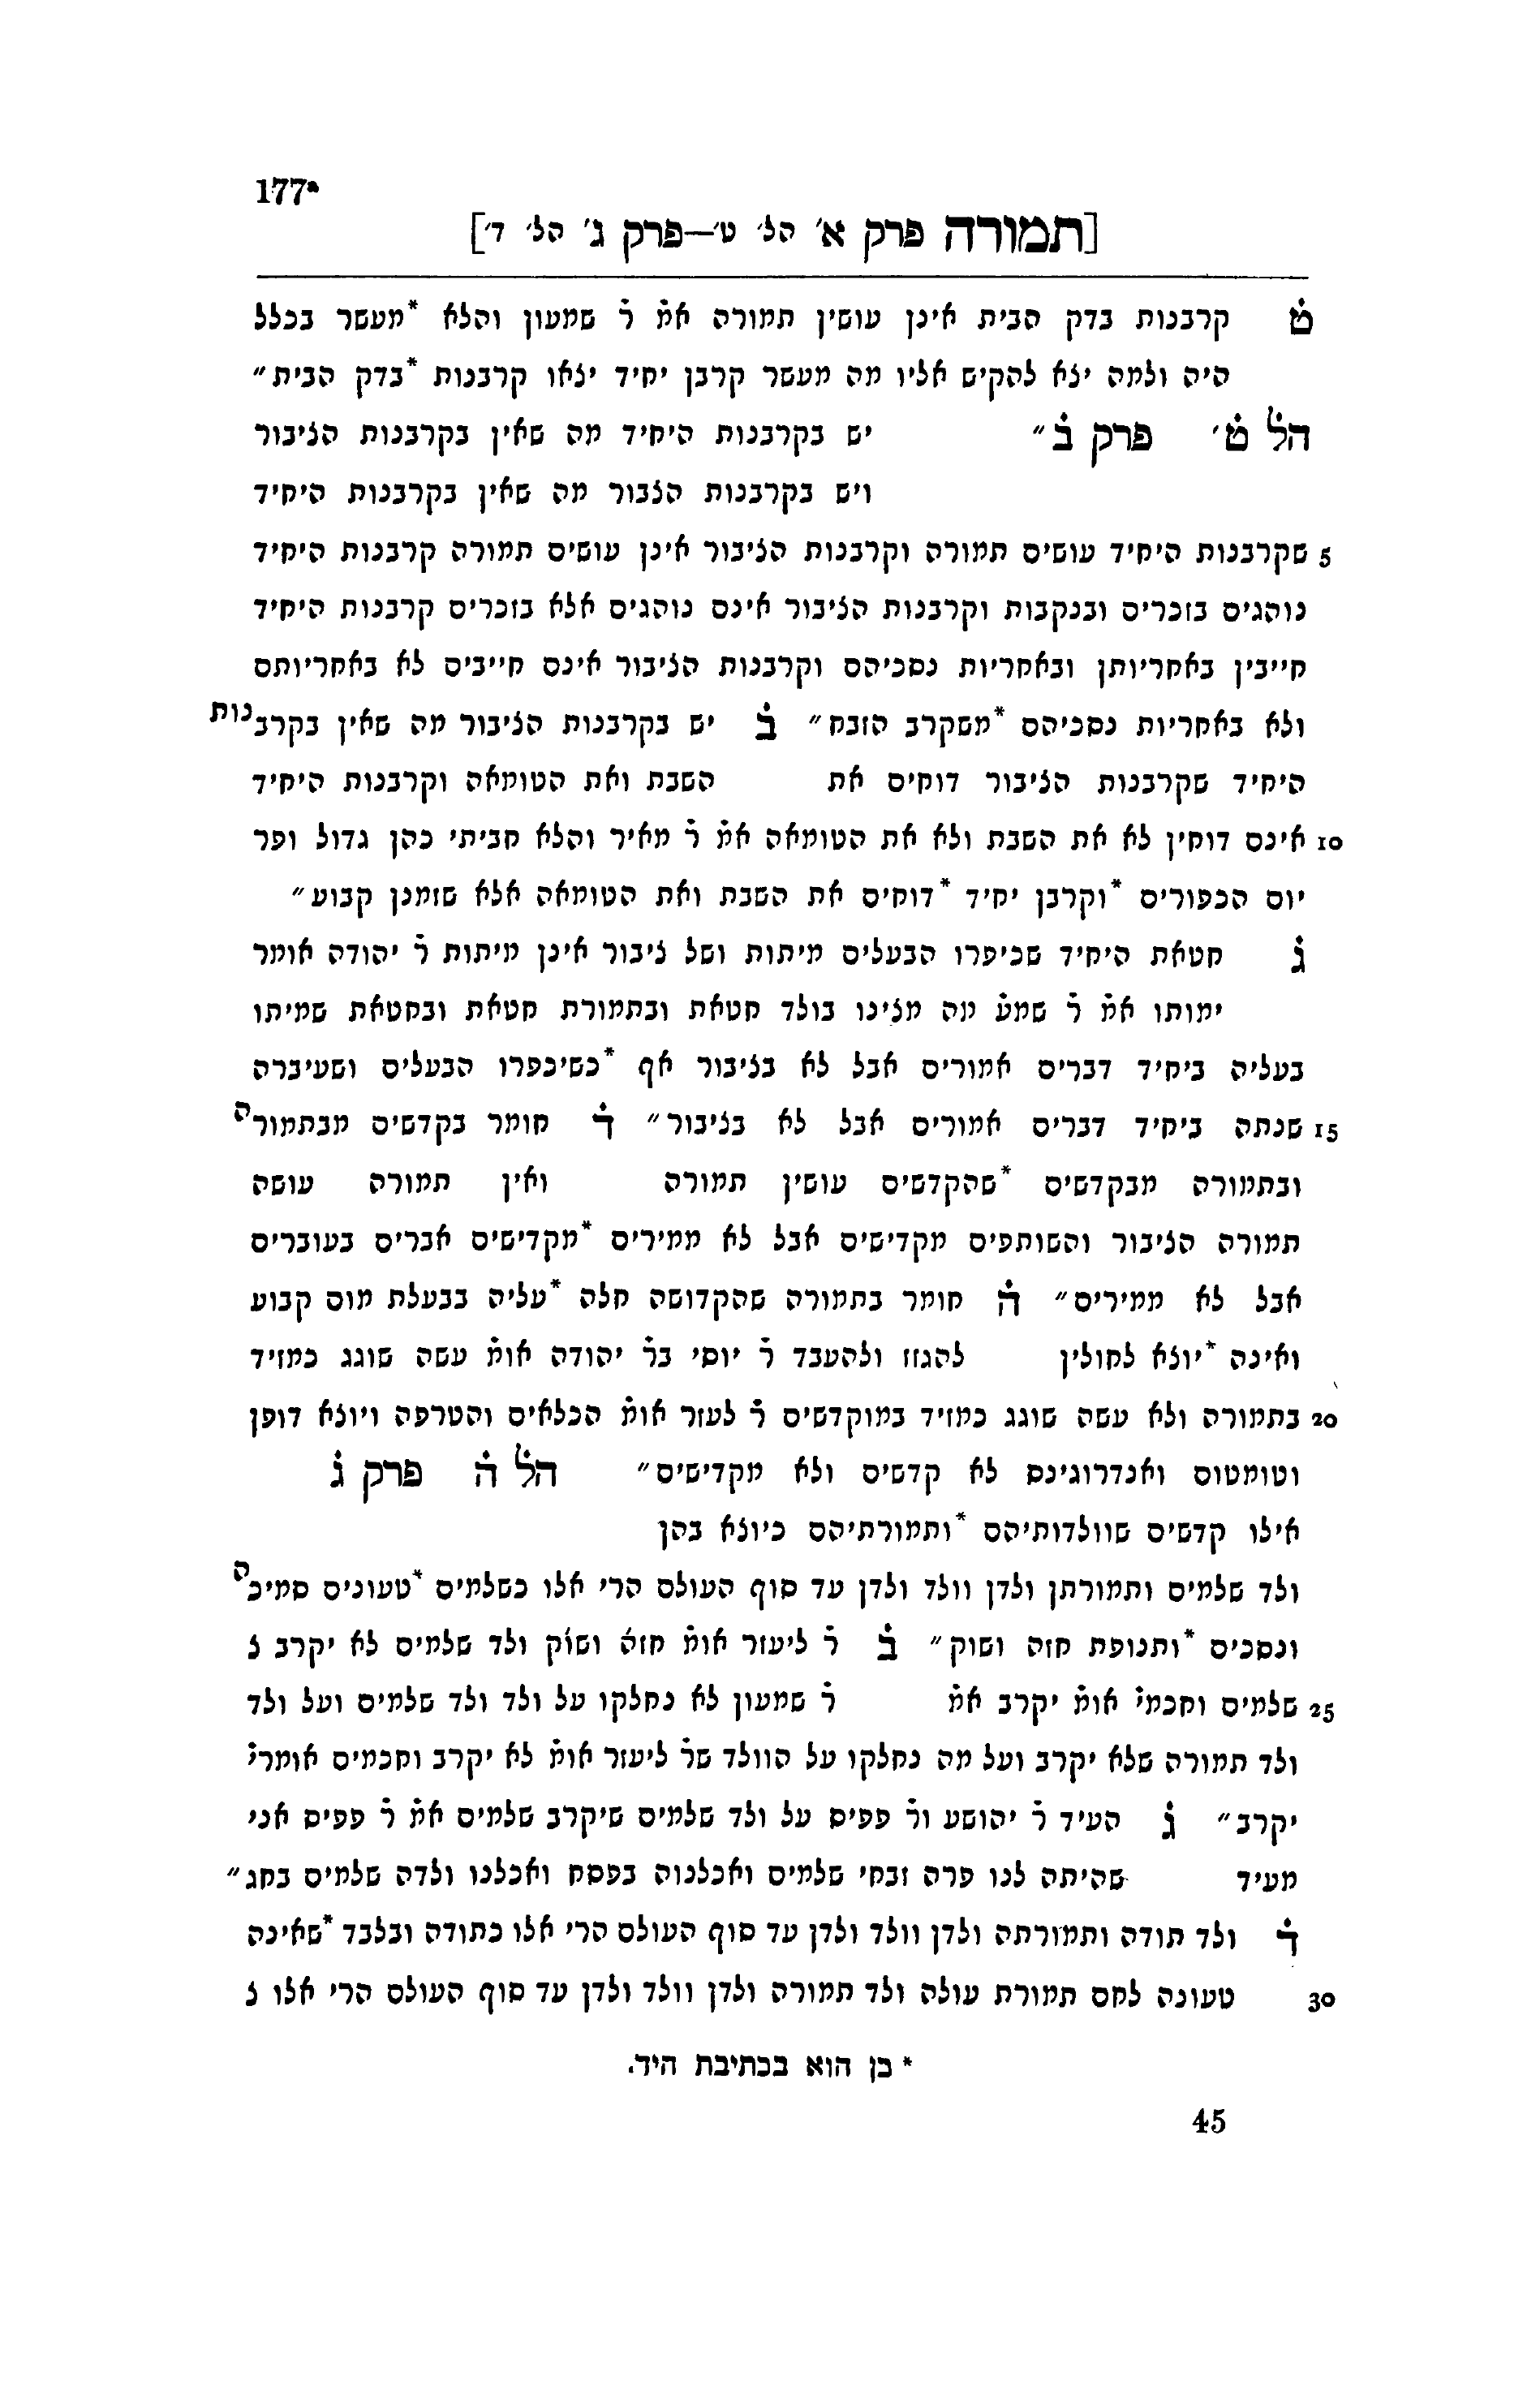 177a
[תמורה פרק א' הל' ט'—פרק ג' הל' ד']
ט קרבנות בדק הבית אינן עושין תמורה אמ̇ ר̇ שמעון והלא *מעשר בכלל
היה ולמה יצא להקיש אליו מה מעשר קרבן יחיד יצאו קרבנות *בדק הבית״
הל ט' פרק ב״ יש בקרבנות היחיד מה שאין בקרבנות הציבור
ויש בקרבנות הצבור מה שאין בקרבנות היחיד
5 שקרבנות היחיד עושים תמורה וקרבנות הציבור אינן עושים תמורה קרבנות היחיד
נוהגים בזכרים ובנקבות וקרבנות הציבור אינם נוהגים אלא בזכרים קרבנות היחיד
חייבין באחריותן ובאחריות נסכיהם וקרבנות הציבור אינם חייבים לא באחריותם
ולא באחריות נסכיהם *משקרב הזבח״ ב יש בקרבנות הציבור מה שאין בקרבנות
היחיד שקרבנות הציבור דוחים את השבת ואת הטומאה וקרבנות היחיד
10 אינם דוחין לא את השבת ולא את הטומאה אמ̇ ר̇ מאיר והלא חביתי כהן גדול ופר
יום הכפורים *וקרבן יחיד *דוחים את השבת ואת הטומאה אלא שזמנן קבוע״
ג חטאת היחיד שכיפרו הבעלים מיתות ושל ציבור אינן מיתות ר̇ יהודה אומר
ימותו אמ̇ ר̇ שמע̇ מה מצינו בולד חטאת ובתמורת חטאת ובחטאת שמיתו
בעליה ביחיד דברים אמורים אבל לא בציבור אף *כשיכפרו הבעלים ושעיברה
15 שנתה ביחיד דברים אמורים אבל לא בציבור״ ד חומר בקדשים מבתמורה
ובתמורה מבקדשים *שהקדשים עושין תמורה ואין תמורה עושה
תמורה הציבור והשותפים מקדישים אבל לא ממירים *מקדישים אברים בעוברים
אבל לא ממירים״ ה חומר בתמורה שהקדושה חלה *עליה בבעלת מום קבוע
ואינה *יוצא לחולין להגזז ולהעבד ר̇ יוסי בר̇ יהודה אומ̇ עשה שוגג כמזיד
20 בתמורה ולא עשה שוגג כמזיד במוקדשים ר̇ לעזר אומ̇ הכלאים והטרפה ויוצא דופן
וטומטום ואנדרוגינס לא קדשים ולא מקדישים״ הל ה פרק ג
אילו קדשים שוולדותיהם *ותמורתיהם כיוצא בהן
ולד שלמים ותמורתן ולדן וולד ולדן עד סוף העולם הרי אלו כשלמים *טעונים סמיכה
ונסכים *ותנופת חזה ושוק״ ב ר̇ ליעזר אומ̇ חזה̇ ושוק ולד שלמים לא יקרב צ
25 שלמים וחכמי̇ אומ̇ יקרב אמ̇ ר̇ שמעון לא נחלקו על ולד ולד שלמים ועל ולד
ולד תמורה שלא יקרב ועל מה נחלקו על הוולד שר̇ ליעזר אומ̇ לא יקרב וחכמים אומרי̇
יקרב״ ג העיד ר̇ יהושע ור̇ פפיס על ולד שלמים שיקרב שלמים אמ̇ ר̇ פפיס אני
מעיד שהיתה לנו פרה זבחי שלמים ואכלנוה בפסח ואכלנו ולדה שלמים בחג״
ד ולד תודה ותמורתה ולדן וולד ולדן עד סוף העולם הרי אלו כתודה ובלבד *שאינה
30 טעונה לחם תמורת עולה ולד תמורה ולדן וולד ולדן עד סוף העולם הרי אלו צ
* כן הוא בכתיבת היד.
45